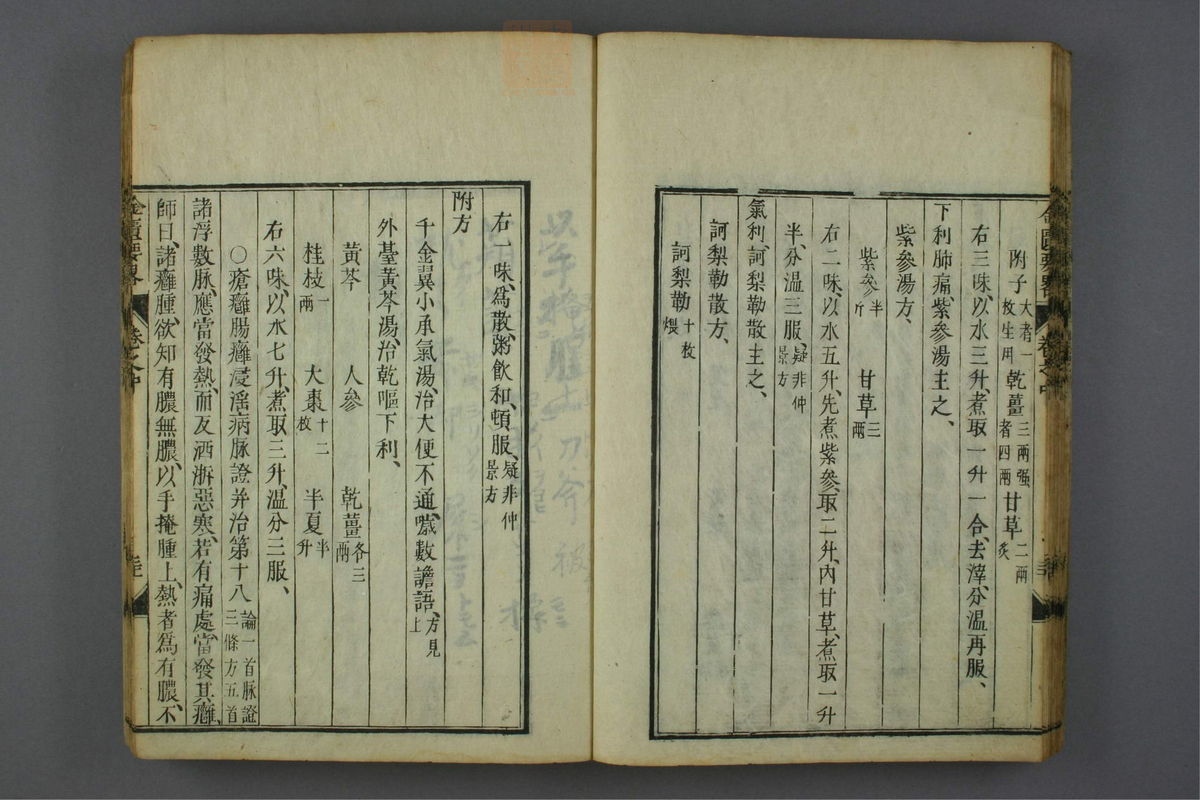 金匱要畧　卷之中
附子大者一枚生用　乾薑三兩強者四兩　甘草二兩炙
右三味、以水三升、煮取一升一合、去滓、分溫再服、
下利肺痛、紫參湯主之、
紫參湯方、
紫參半斤　甘草三兩
右二味、以水五升、先煮紫參、取二升、內甘草、煮取一升
半、分溫三服、疑非仲景方
氣利、訶梨勒散主之、
訶梨勒散方、
訶梨勒十枚煨
右一味、爲散、粥飲和、頓服、疑非仲景方
附方
千金翼小承氣湯、治大便不通、噦數譫語、方見上
外臺黃芩湯、治乾嘔下利、
黃芩　人參　乾薑各三兩
桂枝一兩　大棗十二枚　半夏半升
右六味、以水七升、煮取三升、溫分三服、
○瘡癰腸癰浸淫病脉證并治第十八論一首脉證三條方五首
諸浮數脉、應當發熱、而反洒淅惡寒、若有痛處、當發其癰、
師曰、諸癰腫、欲知有膿無膿、以手掩腫上、熱者爲有膿、不
金匱要畧　卷之中